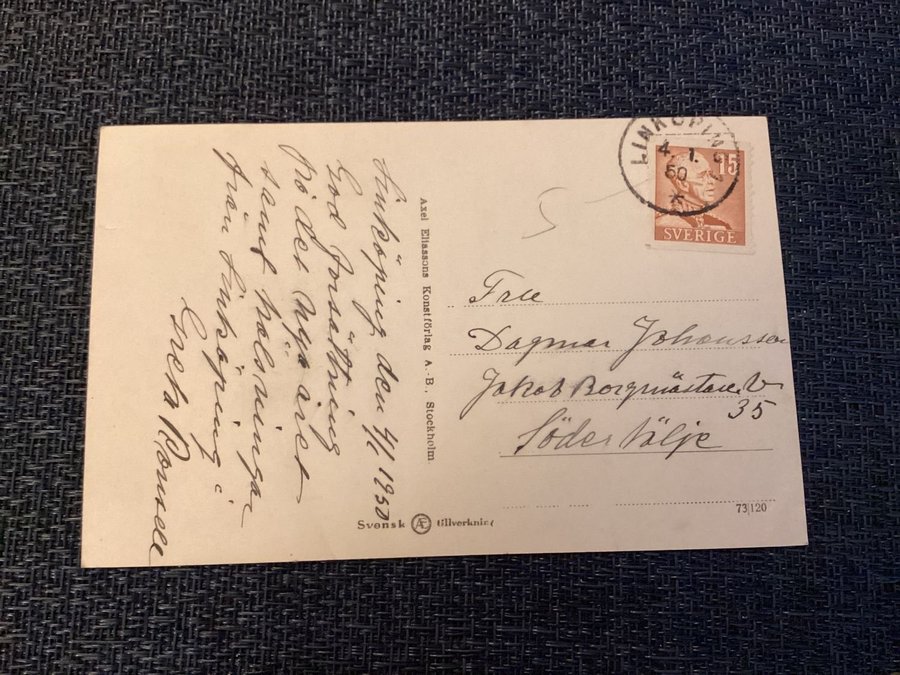 Linköping den 4/1 1950
God fortsättning
på det Nya året
samt hälsningar
från Linköping
Greta
Axel Eliassons Konstförlag A.-B., Stockholm
Svensk Æ tillverkning
LINKÖPING
4. 1. 50
15
SVERIGE
Fru
Dagmar Johansson
Jakob Borgmästare V
35
Södertälje
73|120